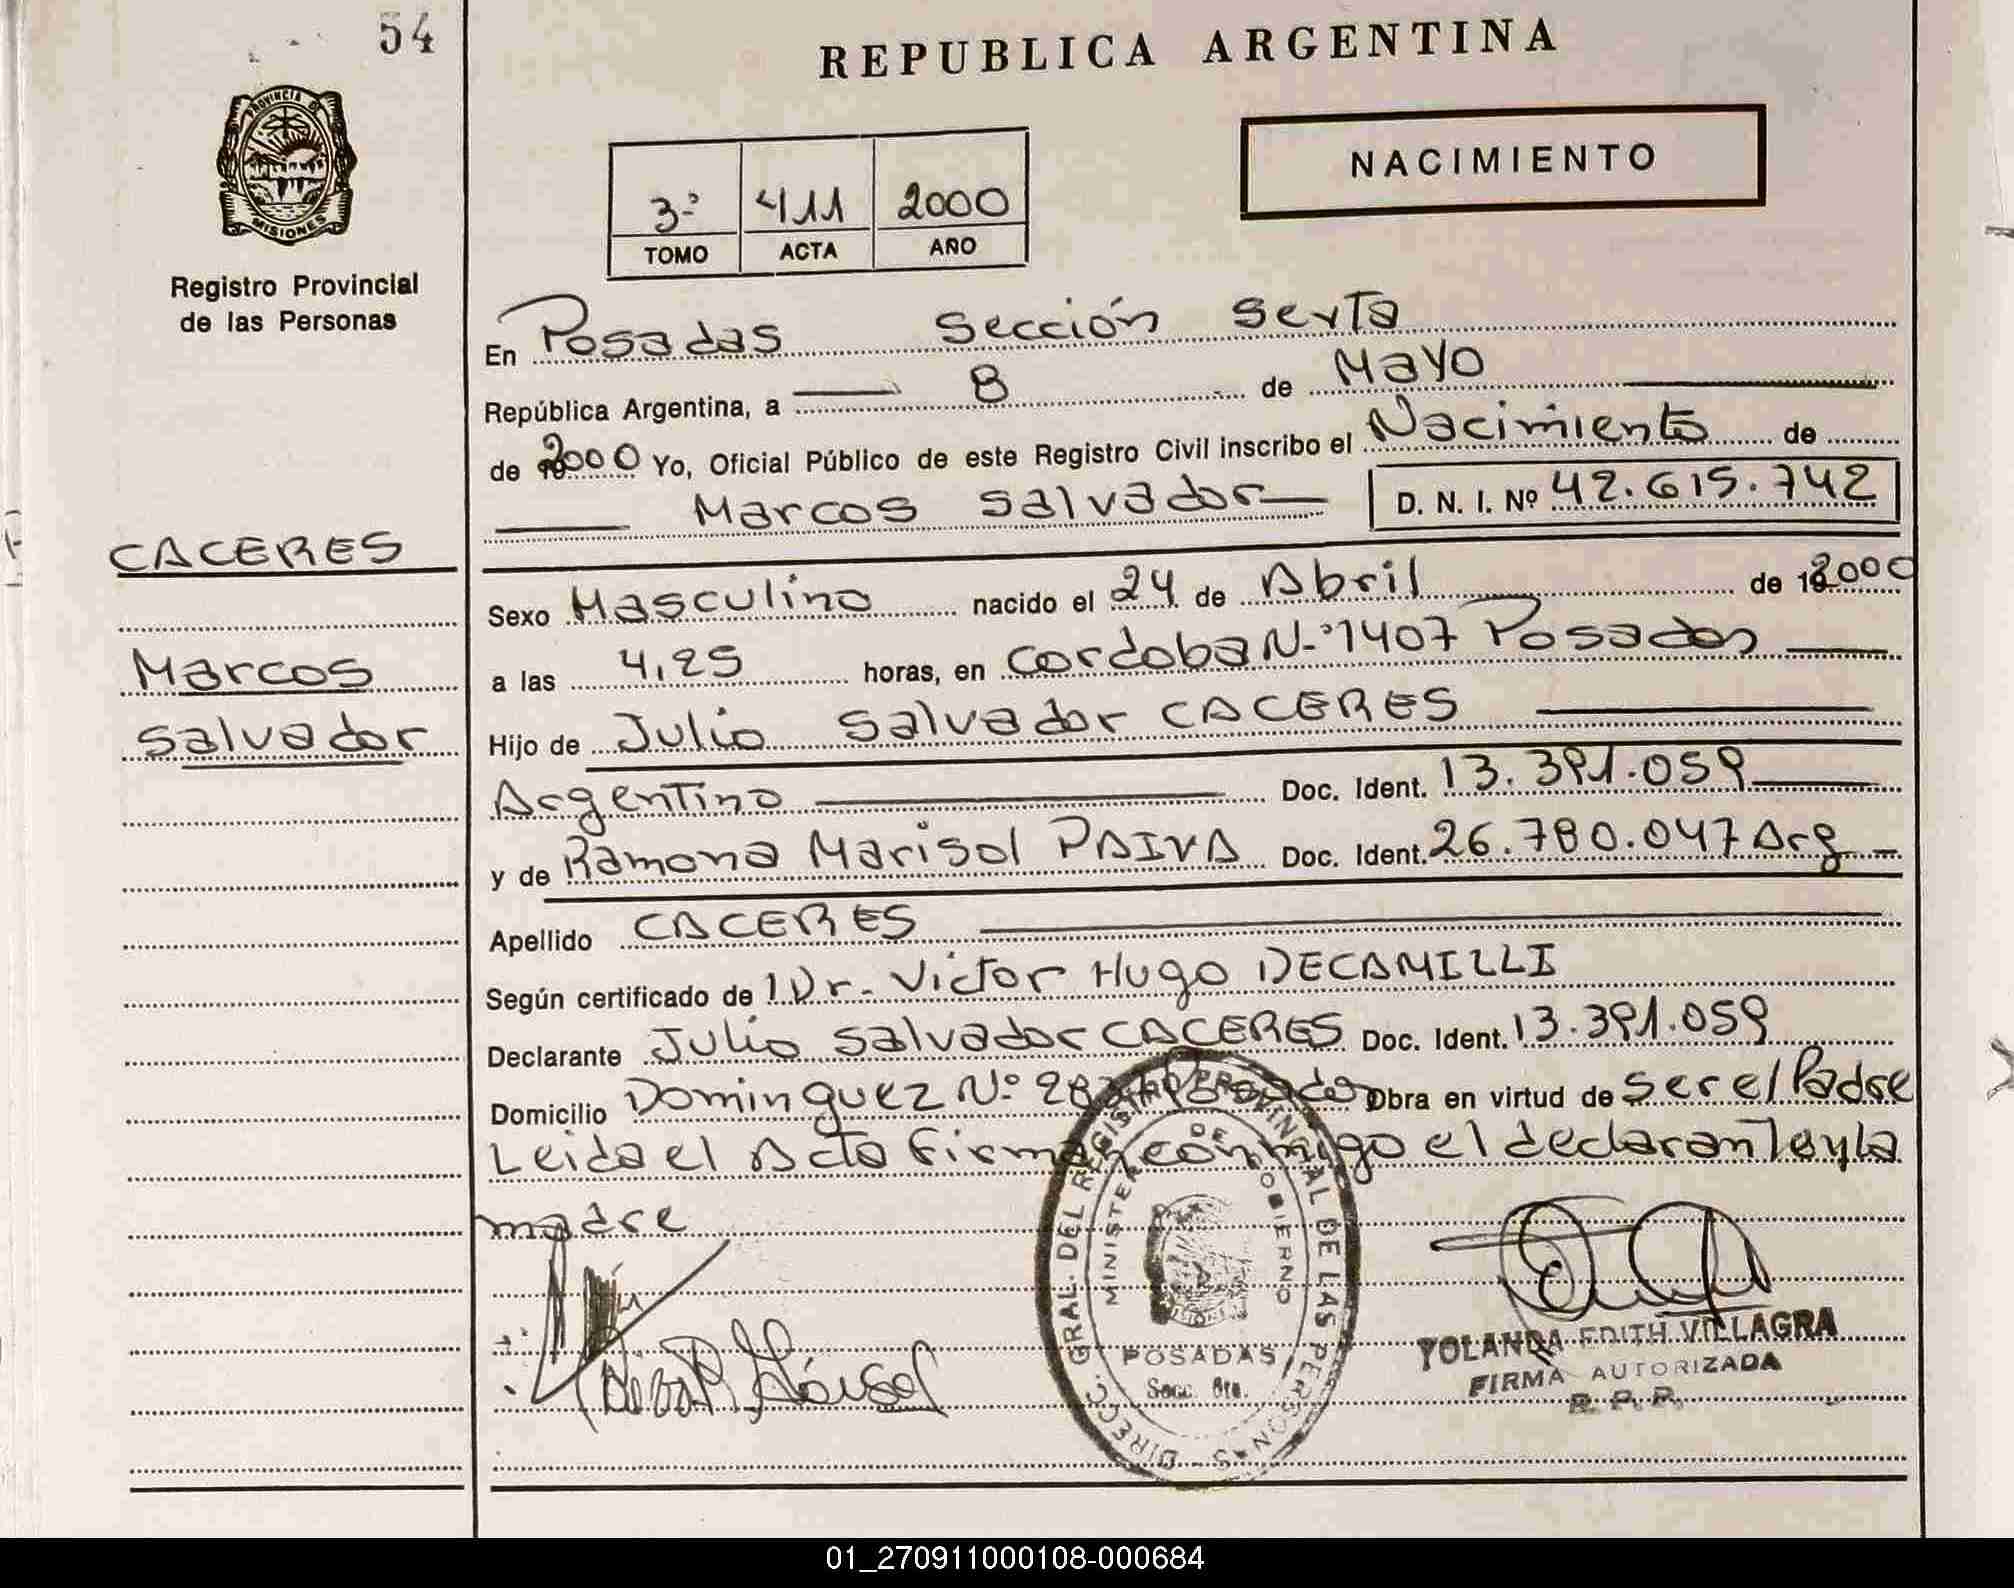 54
REPUBLICA ARGENTINA
PROVINCIA DE
MISIONES
NACIMIENTO
3º 411 2000
TOMO ACTA AÑO
Registro Provincial
de las Personas
En Posadas Sección Sexta
República Argentina, a 8 de Mayo
de 2000 Yo, Oficial Público de este Registro Civil inscribo el Nacimiento de
Marcos Salvador D. N. I. Nº 42.615.742
CACERES
Marcos
Salvador
Sexo Masculino nacido el 24 de Abril de 2000
a las 4,25 horas, en Cordoba N.º 1407 Posadas
Hijo de Julio Salvador CACERES
Argentino Doc. Ident. 13.391.059
y de Ramona Marisol PAIVA Doc. Ident. 26.780.047 Arg
Apellido CACERES
Según certificado de Dr. Victor Hugo DECAMILLI
Declarante Julio Salvador CACERES Doc. Ident. 13.391.059
Domicilio Dominguez Nº Posadas Obra en virtud de Ser el Padre
Leida el Acta Firman conmigo el declarante y la
madre
DIRECC. GRAL. DEL REGISTRO PROVINCIAL DE LAS PERSONAS
MINISTERIO DE GOBIERNO
POSADAS
Secc. 6ta.
YOLANDA EDITH VILLAGRA
FIRMA AUTORIZADA
R. P. P.
01_270911000108-000684